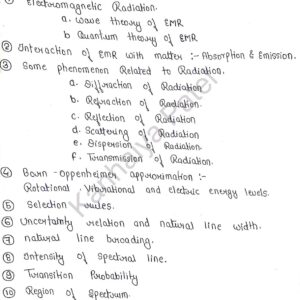 ① Electromagnetic Radiation.
a. Wave theory of EMR
b Quantum theory of EMR
② Interaction of EMR with matter :- Absorption & Emission.
③ Some phenomenon Related to Radiation.
a. Diffraction of Radiation
b. Refraction of Radiation.
c. Reflection of Radiation
d. Scattering of Radiation
e. Dispersion of Radiation.
f. Transmission of Radiation.
④ Born-Oppenheimer approximation :-
Rotational, Vibrational and electric energy levels.
⑤ Selection rules.
⑥ Uncertainty relation and natural line width.
⑦ natural line broading.
⑧ Intensity of spectral line.
⑨ Transition Probability
⑩ Region of Spectrum.
Kanhaiya Patel